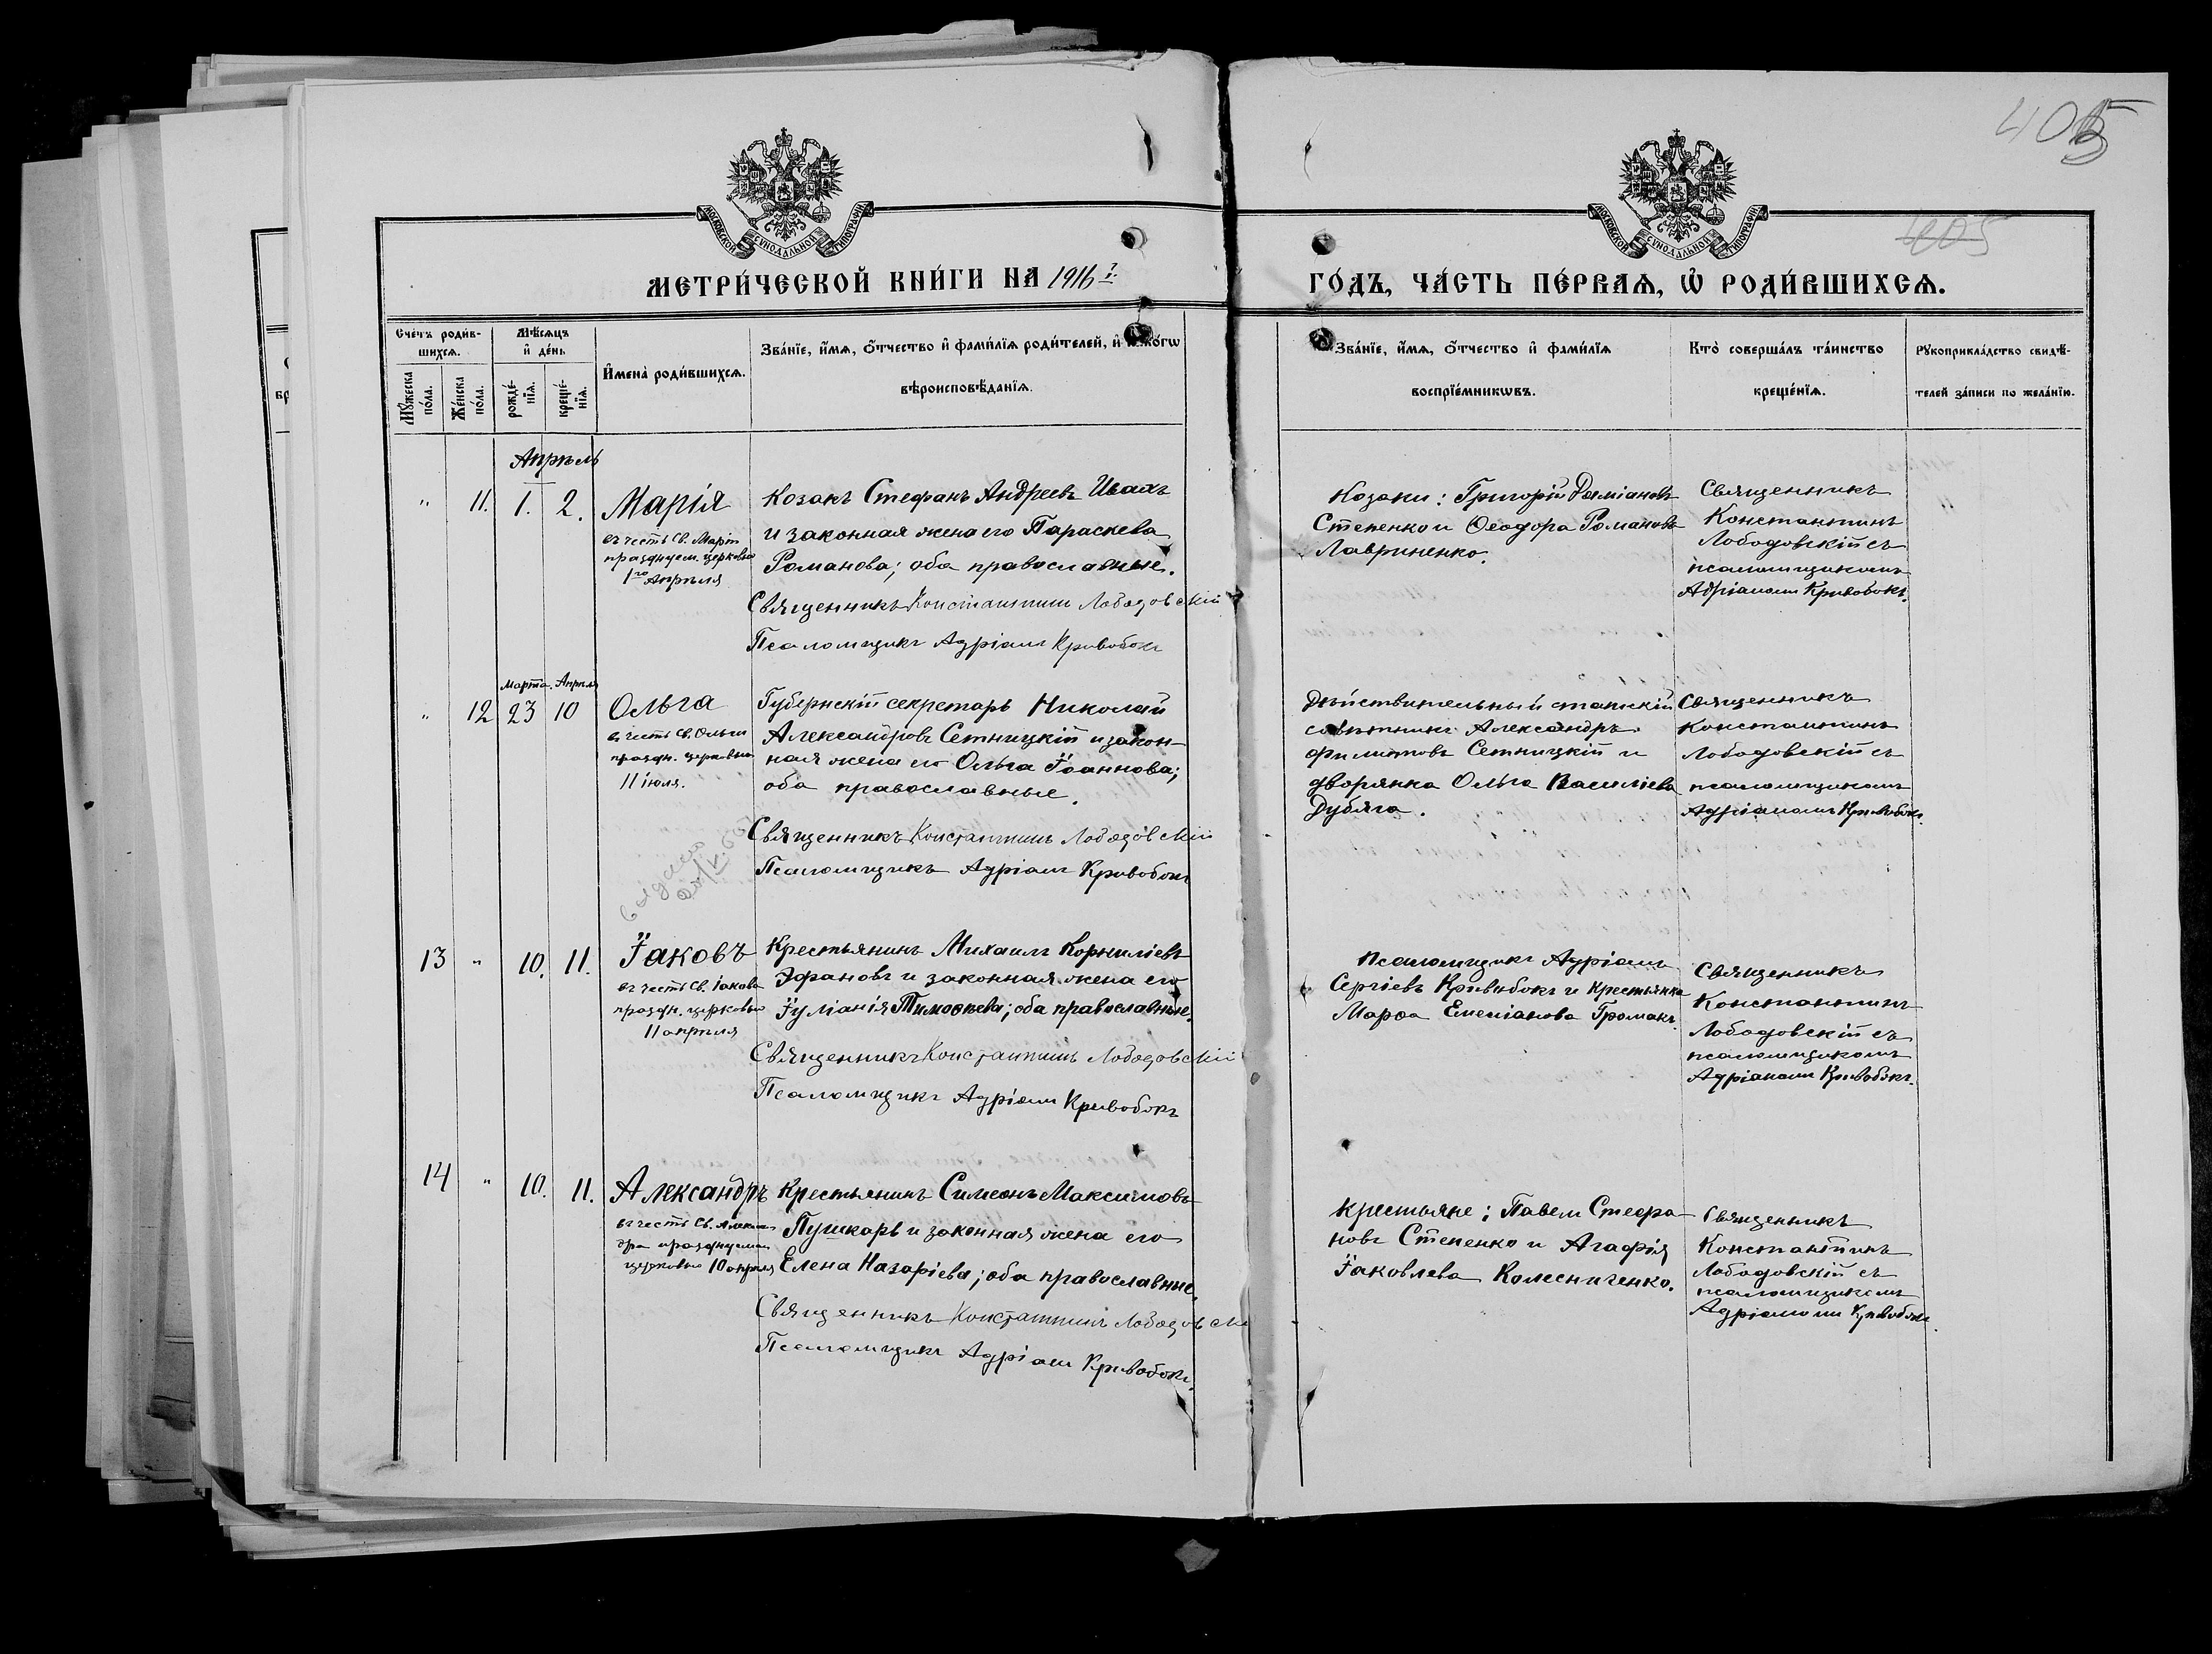 405
405
МОСКОВСКОЙ СѴНОДАЛЬНОЙ ТИПОГРАФІИ
МОСКОВСКОЙ СѴНОДАЛЬНОЙ ТИПОГРАФІИ
МЕТРИ́ЧЕСКОЙ КНИ́ГИ НА 1916 г.
ГО́ДЪ, ЧА́СТЬ ПЕ́РВАѦ, Ѡ҆ РОДИ́ВШИХСѦ.
Сче́тъ роди́в-
шихсѧ.
Мꙋ́жеска
по́ла.
Же́нска
по́ла.
Мѣ́сѧцъ
и҆ де́нь
рожде́-
нїѧ.
креще́-
нїѧ.
И҆мена̀ роди́вшихсѧ.
Зва́нїе, и҆́мѧ, ѻ҆́тчество и҆ фами́лїѧ роди́телей, и҆ како́гѡ
вѣроисповѣ́данїѧ.
Зва́нїе, и҆́мѧ, ѻ҆́тчество и҆ фами́лїѧ
воспрїе́мникѡвъ.
Кто̀ соверша́лъ та́инство
креще́нїѧ.
Рꙋкоприкла́дство свидѣ́-
телей за́писи по жела́нїю.
Апрѣль
" 11. 1. 2.
Марія
въ честь Св. Маріи
празднуем. церковью
1го Апрѣля
Козакъ Стефанъ Андреевъ Ивахъ
и законная жена его Параскева
Романова; оба православные.
Священникъ Константинъ Лободовскій
Псаломщикъ Адріанъ Кривобокъ
Козаки: Григорій Даміановъ
Степенко и Ѳеодора Романова
Лавриненко.
Священникъ
Константинъ
Лободовскій съ
псаломщикомъ
Адріаномъ Кривобокъ.
Марта. Апрѣля
" 12 23 10
Ольга
въ честь Св. Ольги
праздн. церковью
11 іюля.
Губернскій секретарь Николай
Александровъ Сетницкій и закон-
ная жена его Ольга Іоаннова;
оба православные.
Священникъ Константинъ Лободовскій
Псаломщикъ Адріанъ Кривобокъ
Дѣйствительный статскій
совѣтникъ Александръ
Филиповъ Сетницкій и
дворянка Ольга Василіева
Дубяга.
Священникъ
Константинъ
Лободовскій съ
псаломщикомъ
Адріаномъ Кривобокъ.
13 " 10. 11.
Іаковъ
въ честь Св. Іакова
праздн. церковью
11 апрѣля
Крестьянинъ Михаилъ Корниліевъ
Эфановъ и законная жена его
Іуліанія Тимоѳеева; оба православные.
Священникъ Константинъ Лободовскій
Псаломщикъ Адріанъ Кривобокъ
Псаломщикъ Адріанъ
Сергіевъ Кривобокъ и крестьянка
Марѳа Емеліанова Громакъ.
Священникъ
Константинъ
Лободовскій съ
псаломщикомъ
Адріаномъ Кривобокъ.
14 " 10. 11.
Александръ
въ честь Св. Алексан-
дра празднуемаго
церковью 10 апрѣля
Крестьянинъ Симеонъ Максимовъ
Пушкарь и законная жена его
Елена Назаріева; оба православные.
Священникъ Константинъ Лободовскій
Псаломщикъ Адріанъ Кривобокъ.
Крестьяне: Павелъ Стефа-
новъ Степенко и Агафія
Іаковлева Колесниченко.
Священникъ
Константинъ
Лободовскій съ
псаломщикомъ
Адріаномъ Кривобокъ.